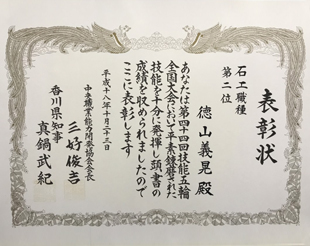 表彰状
石工職種
第二位
徳山義晃殿
あなたは第四十四回技能五輪
全国大会において平素錬磨された
技能を十分に発揮し頭書の
成績を収められましたので
ここに表彰します
平成十八年十月二十三日
中央職業能力開発協会会長
三好俊吉
香川県知事
真鍋武紀